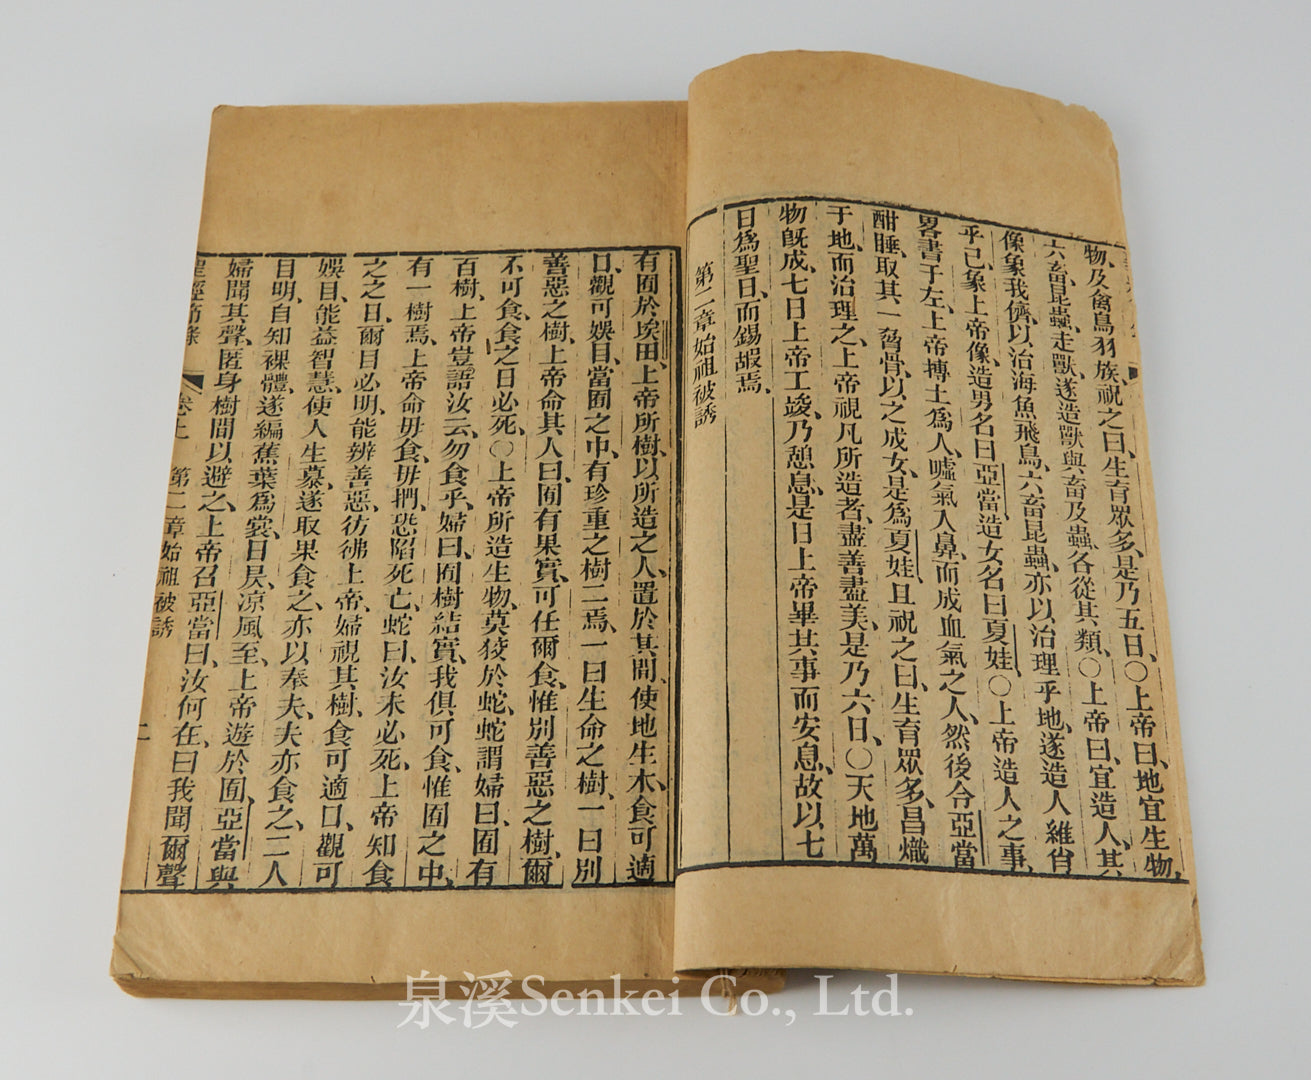 物、及禽鳥羽族、祝之曰、生育眾多、是乃五日、○上帝曰、地宜生物、
六畜、昆蟲、走獸、遂造獸與畜及蟲、各從其類、○上帝曰、宜造人、其
像象我儕、以治海魚飛鳥、六畜昆蟲、亦以治理乎地、遂造人維肖
乎己、象上帝像、造男名曰亞當、造女名曰夏娃、○上帝造人之事、
畧書于左、上帝摶土爲人、噓氣入鼻、而成血氣之人、然後令亞當
酣睡、取其一脅骨、以之成女、是爲夏娃、且祝之曰、生育眾多、昌熾
于地、而治理之、上帝視凡所造者、盡善盡美、是乃六日、○天地萬
物旣成、七日上帝工竣、乃憩息、是日上帝畢其事而安息、故以七
日爲聖日、而錫嘏焉、
第二章始祖被誘
有囿於埃田、上帝所樹、以所造之人、置於其間、使地生木、食可適
口、觀可娛目、當囿之中、有珍重之樹二焉、一曰生命之樹、一曰別
善惡之樹、上帝命其人曰、囿有果實、可任爾食、惟別善惡之樹、爾
不可食、食之日必死、○上帝所造生物、莫狡於蛇、蛇謂婦曰、囿有
百樹、上帝豈語汝云、勿食乎、婦曰、囿樹結實、我俱可食、惟囿之中、
有一樹焉、上帝命毋食、毋捫、恐陷死亡、蛇曰、汝未必死、上帝知食
之之日、爾目必明、能辨善惡、彷彿上帝、婦視其樹、食可適口、觀可
娛目、能益智慧、使人生慕、遂取果食之、亦以奉夫、夫亦食之、二人
目明、自知裸體、遂編蕉葉爲裳、日昃、凉風至、上帝遊於囿、亞當與
婦聞其聲、匿身樹間以避之、上帝召亞當曰、汝何在、曰、我聞爾聲
聖經
卷上 第二章始祖被誘